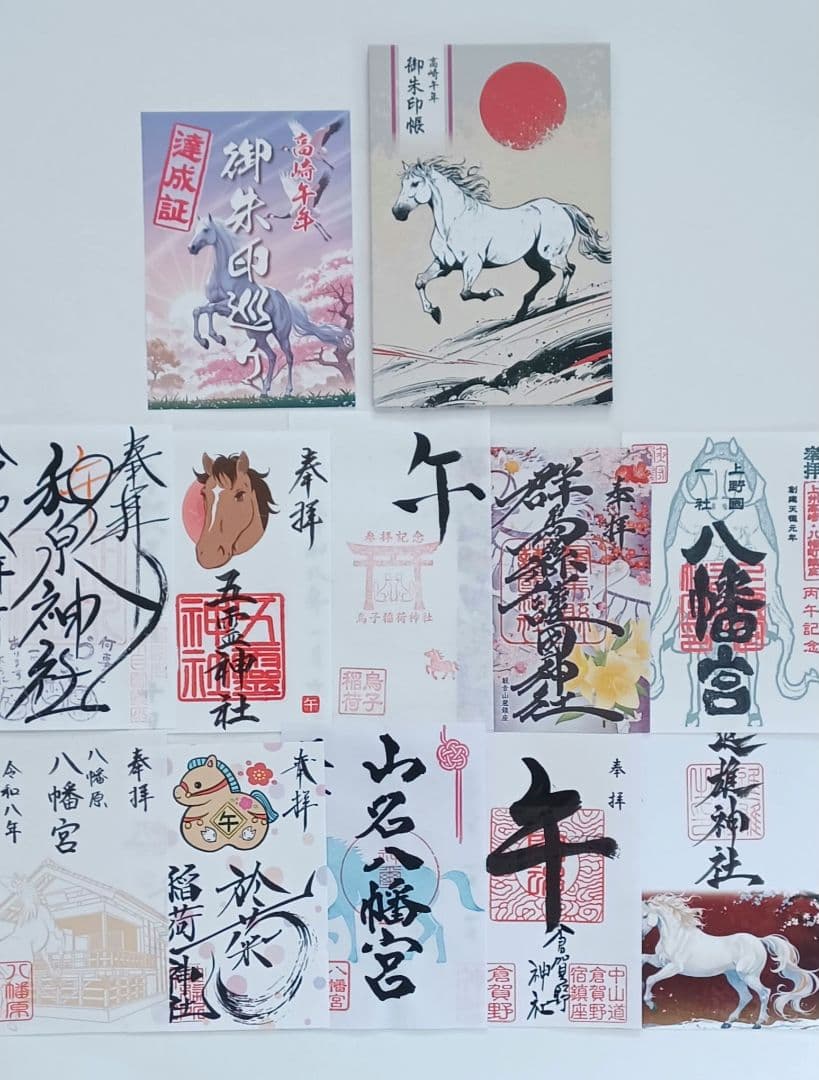 達成証
高崎午年
御朱印巡り
高崎午年
御朱印帳
奉拝
和泉神社
午
奉拝
五霊神社
五靈神社
午
午
参拝記念
烏子稲荷神社
烏子稲荷
奉拝
群馬縣護国神社
観音山麓鎮座
上野國一社
八幡宮
創建天徳元年
丙午記念
奉拝
八幡原
八幡宮
令和八年
八幡原
奉拝
午
於菊
稲荷神社
山名八幡宮
八幡宮
奉拝
午
倉賀野神社
倉賀野
中山道
倉賀野
宿鎮座
雄神社